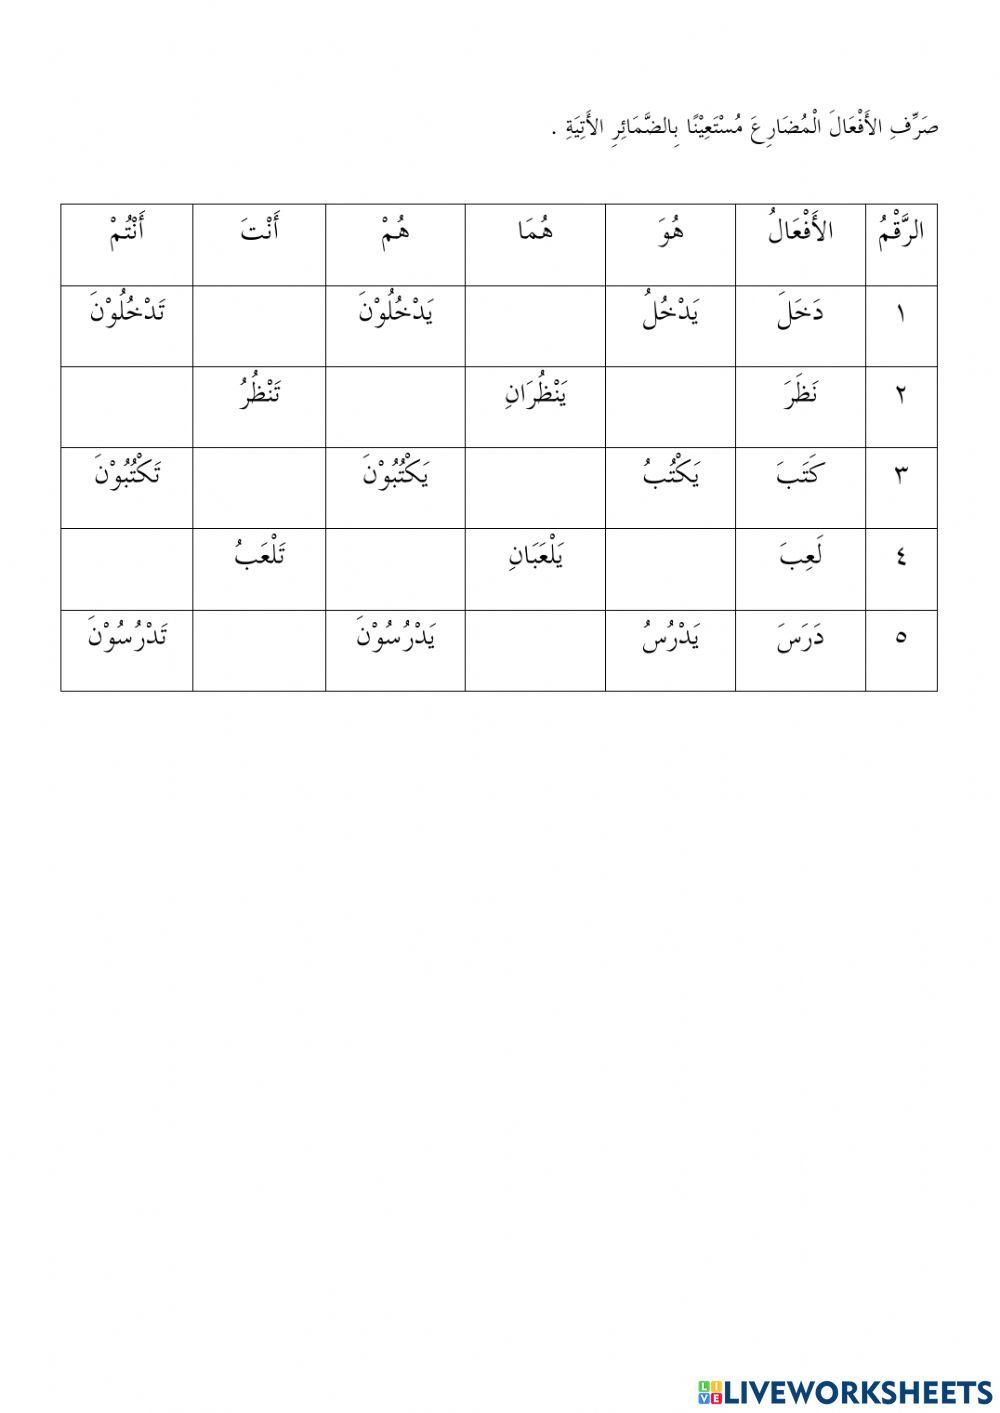 صَرِّفِ الأَفْعَالَ الْمُضَارِعَ مُسْتَعِيْنًا بِالضَّمَائِرِ الأَتِيَةِ .
الرَّقْمُ الأَفْعَالُ هُوَ هُمَا هُمْ أَنْتَ أَنْتُمْ
١ دَخَلَ يَدْخُلُ يَدْخُلُوْنَ تَدْخُلُوْنَ
٢ نَظَرَ يَنْظُرَانِ تَنْظُرُ
٣ كَتَبَ يَكْتُبُ يَكْتُبُوْنَ تَكْتُبُوْنَ
٤ لَعِبَ يَلْعَبَانِ تَلْعَبُ
٥ دَرَسَ يَدْرُسُ يَدْرُسُوْنَ تَدْرُسُوْنَ
LIVE LIVEWORKSHEETS